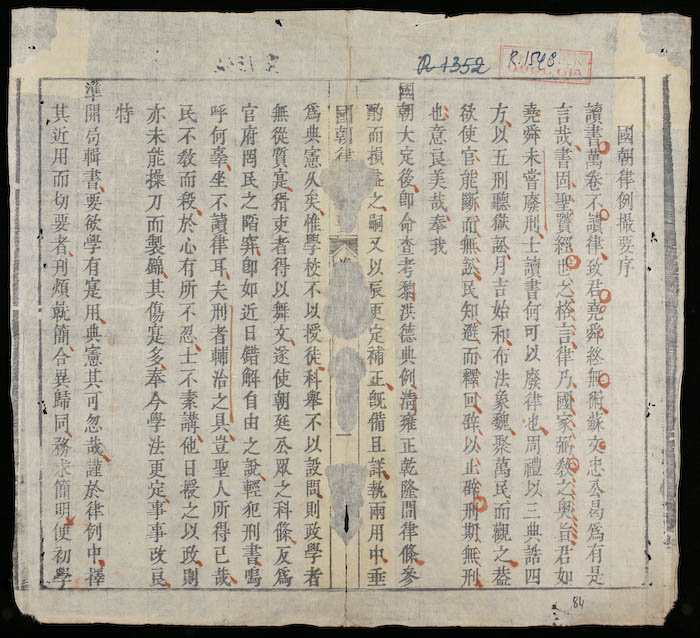 R.1352
R.1548
國朝律例撮要序
讀書萬卷不讀律致君堯舜終無術蘇文忠公曷爲有是
言哉書固聖賢經世之格言律乃國家弼教之奧旨君如
堯舜未嘗廢刑士讀書何可以廢律也周禮以三典誥四
方以五刑聽獄訟月吉始和布法象魏聚萬民而觀之葢
欲使官能斷而無訟民知避而釋回辟以止辟刑期無刑
也意良美哉奉我
國朝大定後卽命查考黎洪德典例清雍正乾隆間律條參
酌而損益之嗣又以辰更定補正旣備且詳執兩用中垂
國朝律
爲典憲久矣惟學校不以授徒科舉不以設問則政學者
無從質寔猾吏者得以舞文遂使朝廷公眾之科條反爲
官府罔民之陷穽卽如近日錯解自由之說輕犯刑書嗚
呼何辜坐不讀律耳夫刑者輔治之具豈聖人所得已哉
民不教而殺於心有所不忍士不素講他日授之以政則
亦未能操刀而製錦其傷寔多奉今學法更定事事改良
特
準開局輯書要欲學有寔用典憲其可忽哉謹於律例中擇
其近用而切要者刊煩就簡合異歸同務求簡明便初學
84